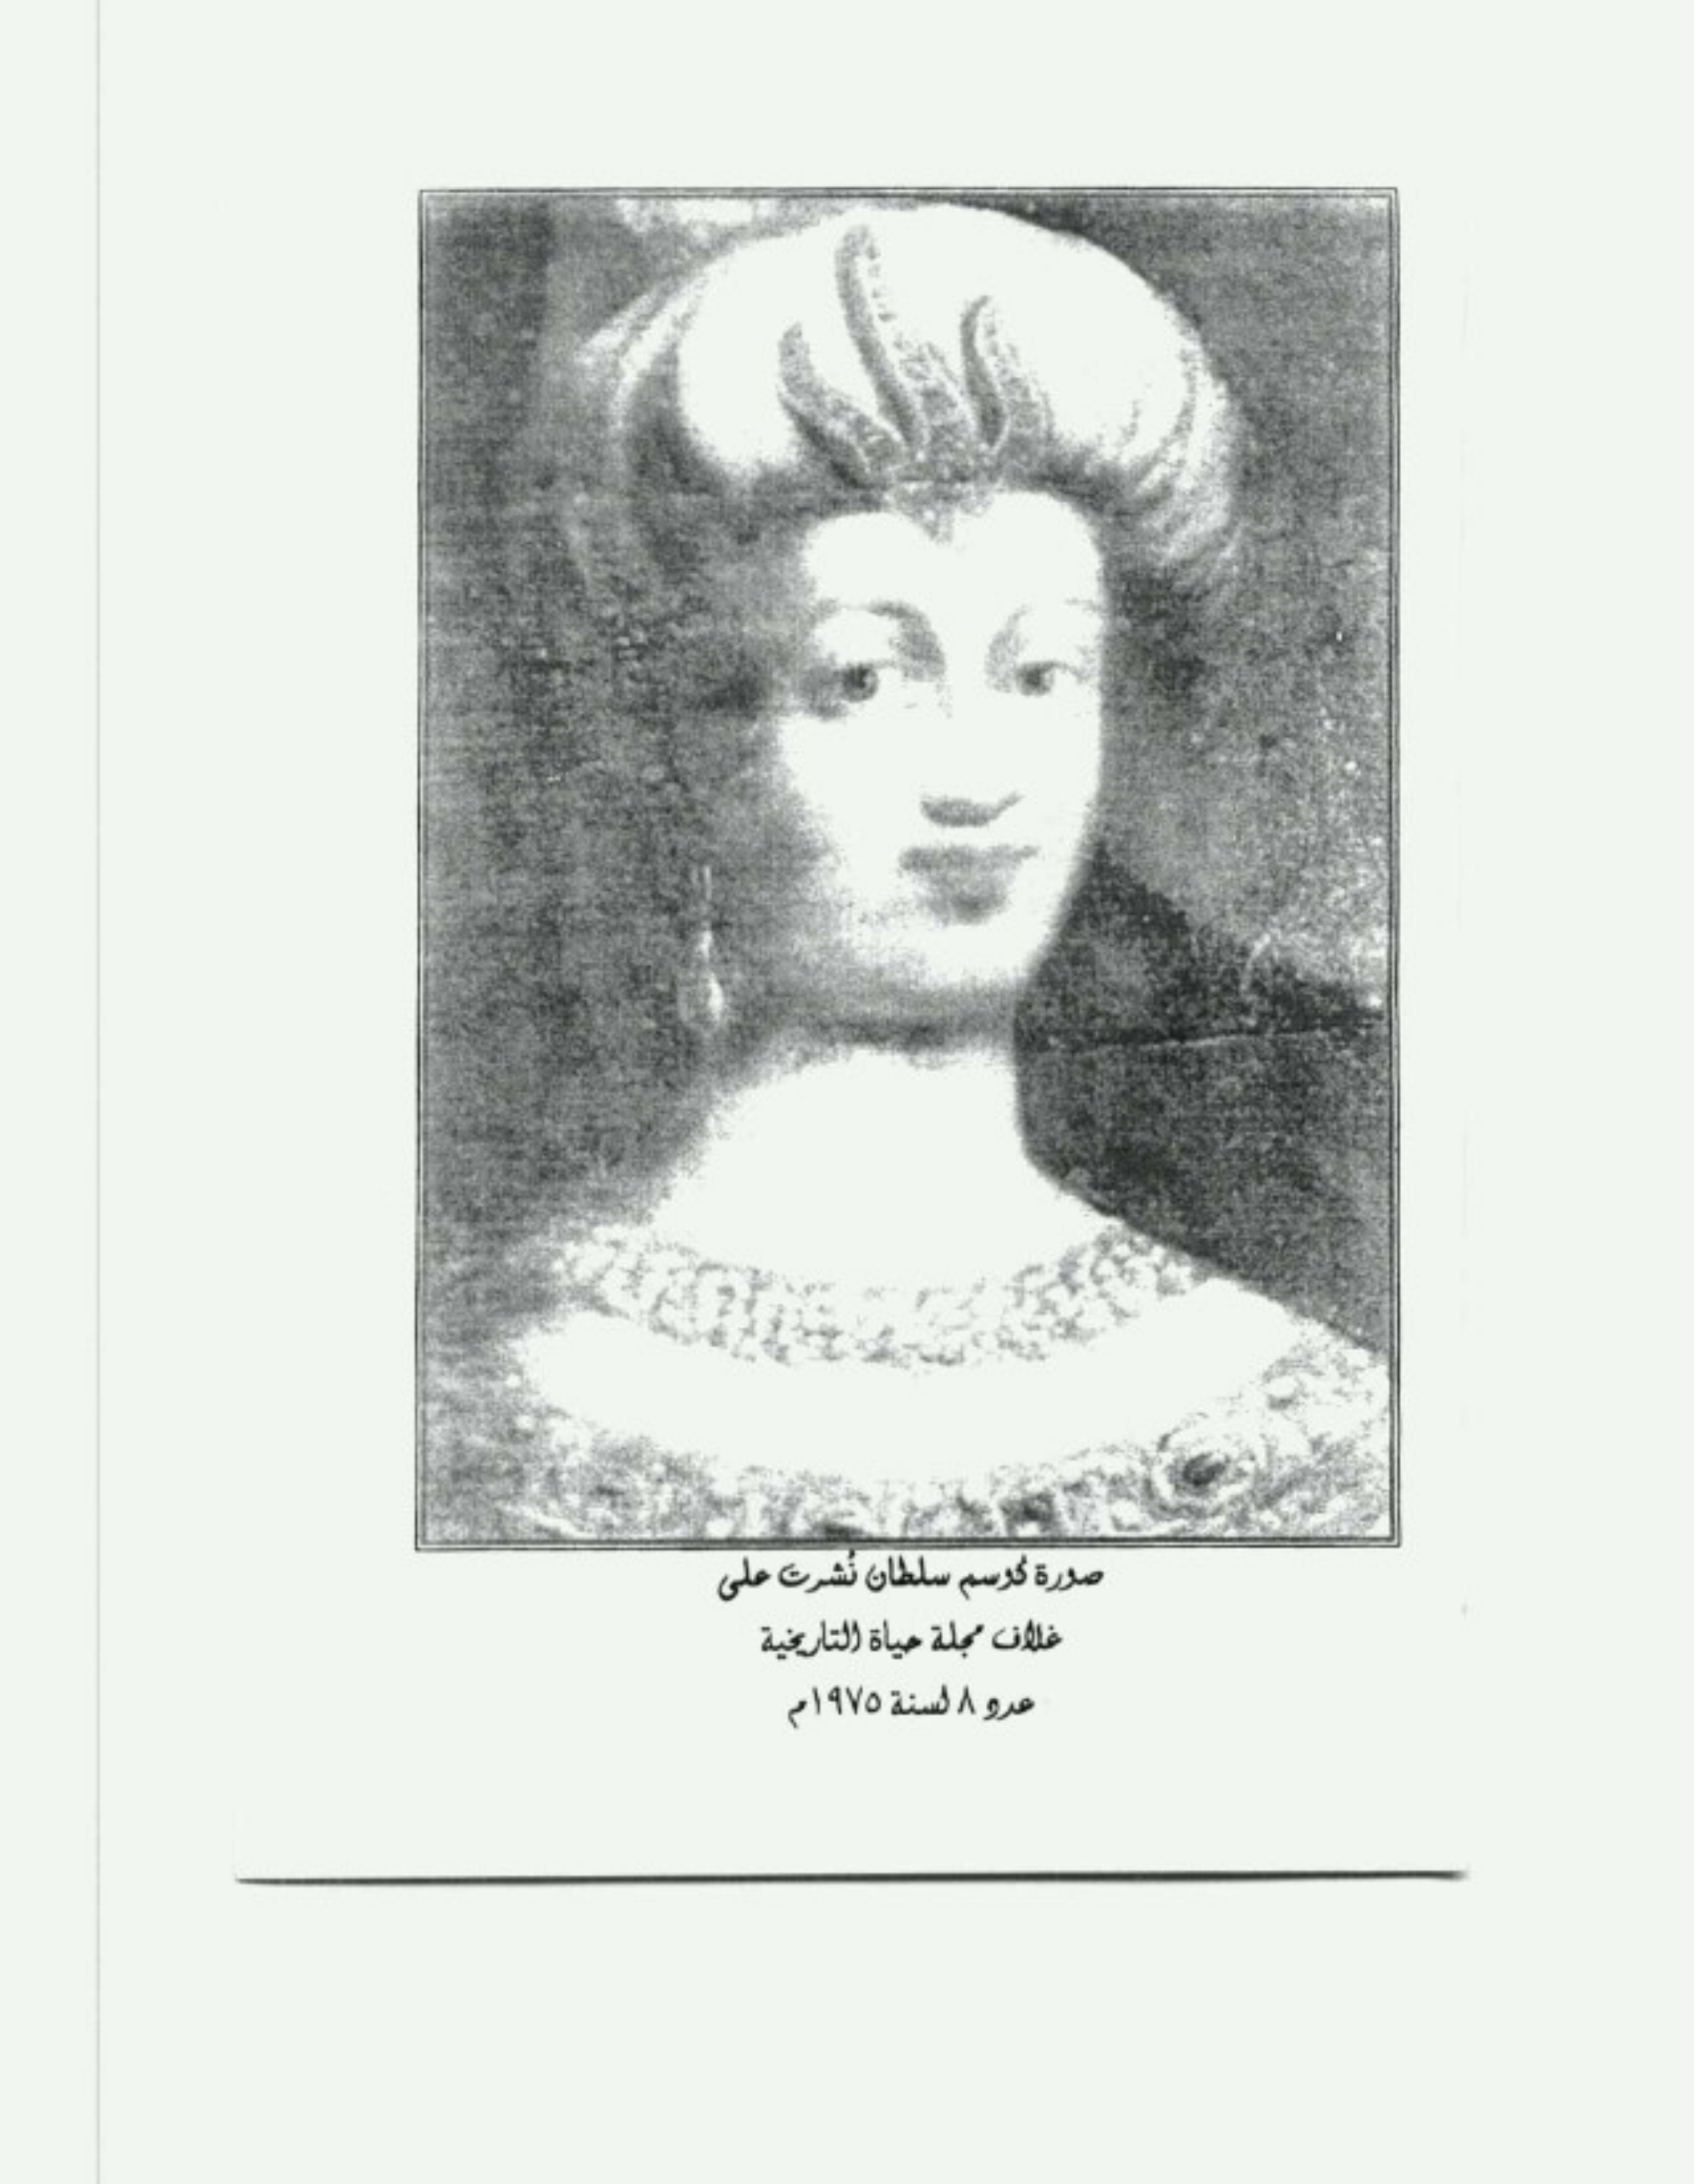 صورة كوسم سلطان نُشرت على
غلاف مجلة حياة التاريخية
عدد ٨ لسنة ١٩٧٥م